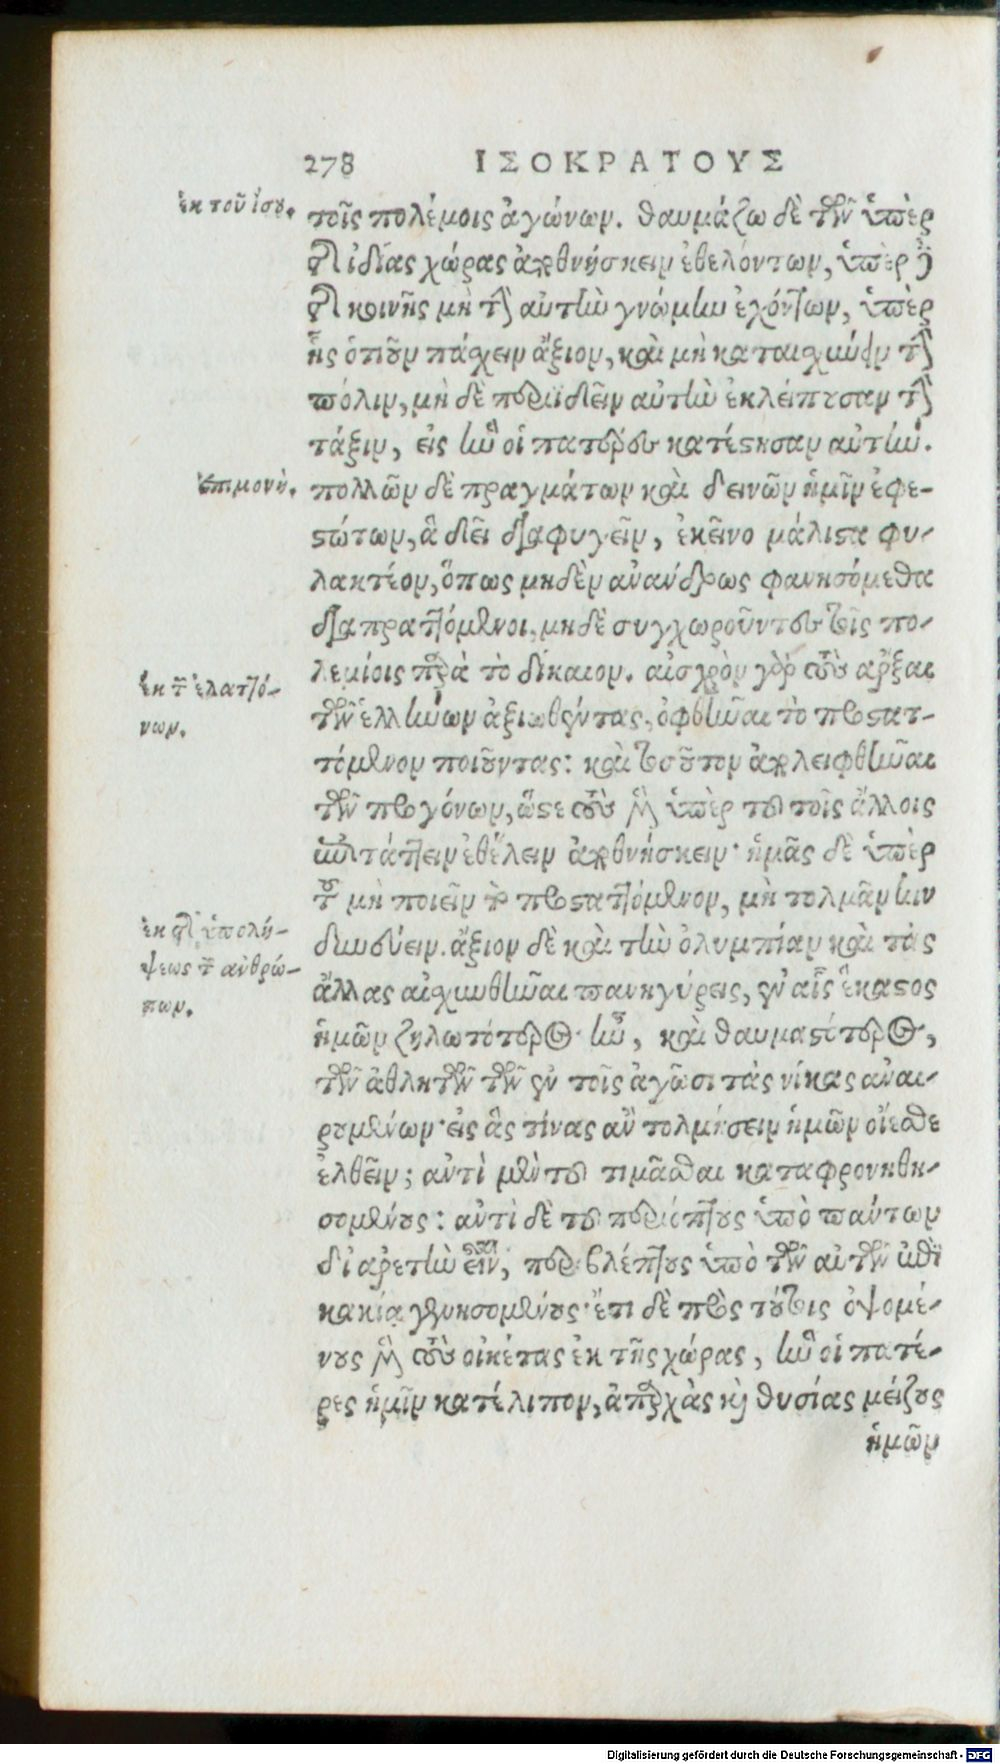 278 ΙΣΟΚΡΑΤΟΥΣ
ἐκ τοῦ ἴσου.
τοῖς πολέμοις ἀγώνων. θαυμάζω δὲ τῶν ὑπὲρ
τῆς ἰδίας χώρας ἀποθνήσκειν ἐθελόντων, ὑπὲρ
τῆς κοινῆς μὴ τὴν αὐτὴν γνώμην ἐχόντων, ὑπὲρ
ἧς ὁτιοῦν πάσχειν ἄξιον, καὶ μὴ καταισχῦναι τὴν
πόλιν, μὴ δὲ περιϊδεῖν αὐτὴν ἐκλείπουσαν τὴν
τάξιν, εἰς ἣν οἱ πατέρες κατέστησαν αὐτήν.
ἐπιμονή.
πολλῶν δὲ πραγμάτων καὶ δεινῶν ἡμῖν ἐφε-
στώτων, ἃ δεῖ διαφυγεῖν, ἐκεῖνο μάλιστα φυ-
λακτέον, ὅπως μηδὲν ἀνάνδρως φανησόμεθα
διαπραττόμενοι, μηδὲ συγχωροῦντες τοῖς πο-
λεμίοις παρὰ τὸ δίκαιον. αἰσχρὸν γὰρ τοὺς ἄρξαι
ἐκ τῶν ἐλαττό-
νων.
τῶν ἑλλήνων ἀξιωθέντας, ὀφθῆναι τὸ προσατ-
τόμενον ποιοῦντας: καὶ τοσοῦτον ἀπολειφθῆναι
τῶν προγόνων, ὥστε τοὺς μὲν ὑπὲρ τοῦ τοῖς ἄλλοις
ἐπιτάττειν ἐθέλειν ἀποθνήσκειν· ἡμᾶς δὲ ὑπὲρ
τοῦ μὴ ποιεῖν τὸ προσαττόμενον, μὴ τολμᾶν κιν
δυνεύειν. ἄξιον δὲ καὶ τὴν ὀλυμπίαν καὶ τὰς
ἐκ τῆς ὑπολή-
ψεως τῶν ἀνθρώ-
πων.
ἄλλας αἰσχυνθῆναι πανηγύρεις, ἐν αἷς ἕκαστος
ἡμῶν ζηλωτότερος ἦν, καὶ θαυμαστότερος,
τῶν ἀθλητῶν τῶν ἐν τοῖς ἀγῶσι τὰς νίκας ἀναι-
ρουμένων· εἰς ἃς τίνας ἂν τολμήσειν ἡμῶν οἴεσθε
ἐλθεῖν; ἀντὶ μὲν τοῦ τιμᾶσθαι καταφρονηθη-
σομένους: ἀντὶ δὲ τοῦ περιόπτους ὑπὸ πάντων
δι' ἀρετὴν εἶναι, περιβλέπτους ὑπὸ τῶν αὐτῶν ἐπὶ
κακίᾳ γενησομένους· ἔτι δὲ πρὸς τούτοις ὀψομέ-
νους μὲν τοὺς οἰκέτας ἐκ τῆς χώρας, ἣν οἱ πατέ-
ρες ἡμῖν κατέλιπον, ἀπαρχὰς καὶ θυσίας μείζους
ἡμῶν
Digitalisierung gefördert durch die Deutsche Forschungsgemeinschaft - DFG